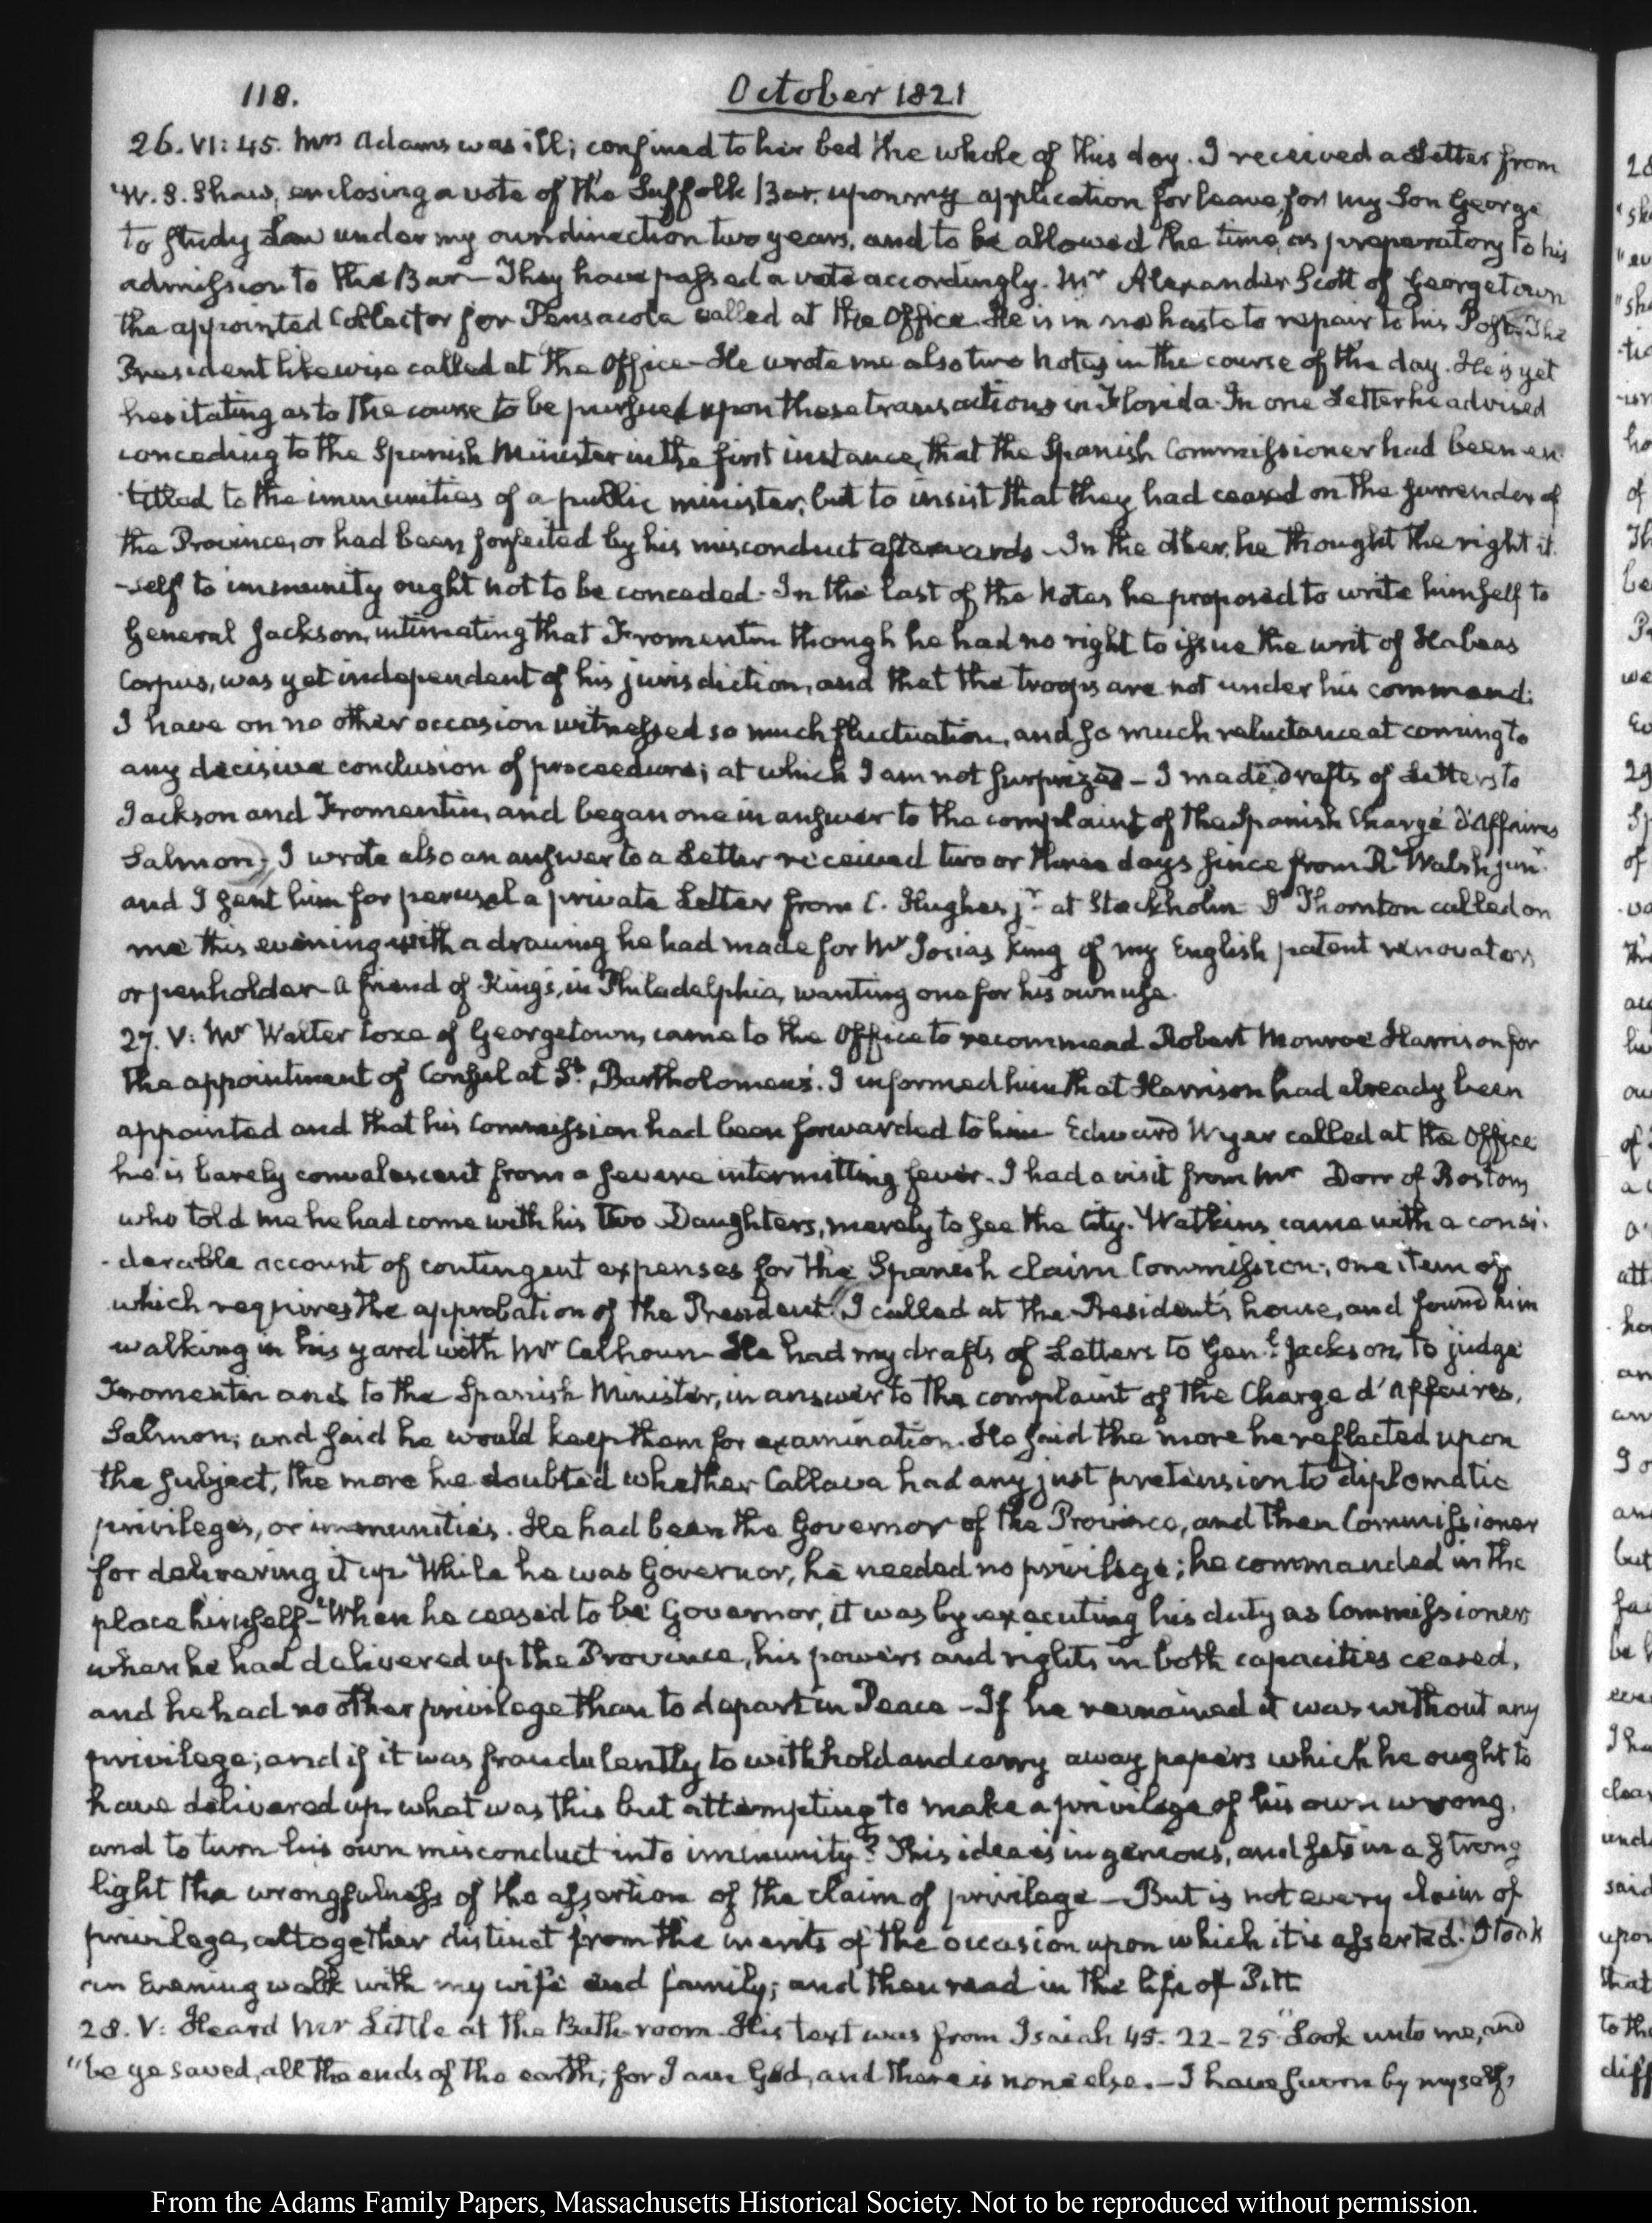 118.
October 1821
26. VI: 45. Mrs Adams was ill; confined to her bed the whole of this day. I received a Letter from
W. S. Shaw, enclosing a vote of the Suffolk Bar, upon my application for leave for my Son George
to study Law under my own direction two years, and to be allowed the time, as preparatory to his
admission to the Bar – They have passed a vote accordingly. Mr Alexander Scott of Georgetown
the appointed Collector for Pensacola called at the Office. He is in no haste to repair to his Post. The
President likewise called at the Office – He wrote me also two Notes in the course of the day. He is yet
hesitating as to the course to be pursued upon these transactions in Florida. In one Letter he advised
conceding to the Spanish Minister in the first instance, that the Spanish Commissioner had been en-
-titled to the immunities of a public minister, but to insist that they had ceased on the surrender of
the Province, or had been forfeited by his misconduct afterwards – In the other, he thought the right it
-self to immunity ought not to be conceded. In the last of the Notes he proposed to write himself to
General Jackson, intimating that Fromentin though he had no right to issue the writ of Habeas
Corpus, was yet independent of his jurisdiction, and that the troops are not under his command.
I have on no other occasion witnessed so much fluctuation, and so much reluctance at coming to
any decisive conclusion of procedure; at which I am not surprized – I made drafts of Letters to
Jackson and Fromentin, and began one in answer to the complaint of the Spanish Chargé d'Affaires
Salmon; I wrote also an answer to a Letter received two or three days since from R. Walsh junr.
and I sent him for perusal a private Letter from C. Hughes jr at Stockholm Dr Thornton called on
me this evening with a drawing he had made for Mr Josias King of my English patent renovator
or penholder – A friend of King's, in Philadelphia, wanting one for his own use.
27. V: Mr Walter Loxe of Georgetown, came to the Office to recommend Robert Monroe Harrison for
the appointment of Consul at St. Bartholomew's. I informed him that Harrison had already been
appointed and that his Commission had been forwarded to him – Edward Wyer called at the Office
he is barely convalescent from a severe intermitting fever. I had a visit from Mr Dorr of Boston,
who told me he had come with his two Daughters, merely to see the City. Watkins came with a consi-
-derable account of contingent expenses for the Spanish claim Commission; one item of
which requires the approbation of the President. I called at the President's house, and found him
walking in his yard with Mr Calhoun – He had my drafts of Letters to Genl. Jackson, to judge
Fromentin and to the Spanish Minister, in answer to the complaint of the Charge d'Affaires,
Salmon; and said he would keep them for examination. He said the more he reflected upon
the subject, the more he doubted whether Callava had any just pretension to diplomatic
privileges, or immunities. He had been the Governor of the Province, and then Commissioner
for delivering it up – While he was Governor, he needed no privilege; he commanded in the
place himself – When he ceased to be Governor, it was by executing his duty as Commissioner,
when he had delivered up the Province, his powers and rights in both capacities ceased,
and he had no other privilege than to depart in Peace – If he remained it was without any
privilege; and if it was fraudulently to withhold and carry away papers which he ought to
have delivered up what was this but attempting to make a privilege of his own wrong,
and to turn his own misconduct into immunity? This idea is ingenious, and sets in a strong
light the wrongfulness of the assertion of the claim of privilege – But is not every claim of
privilege, altogether distinct from the merits of the occasion upon which it is asserted. I took
an Evening walk with my wife and family; and then read in the life of Pitt
28. V: Heard Mr Little at the Bath-room. His text was from Isaiah 45. 22–25 "Look unto me, and
"be ye saved, all the ends of the earth; for I am God, and there is none else. – I have sworn by myself,
From the Adams Family Papers, Massachusetts Historical Society. Not to be reproduced without permission.